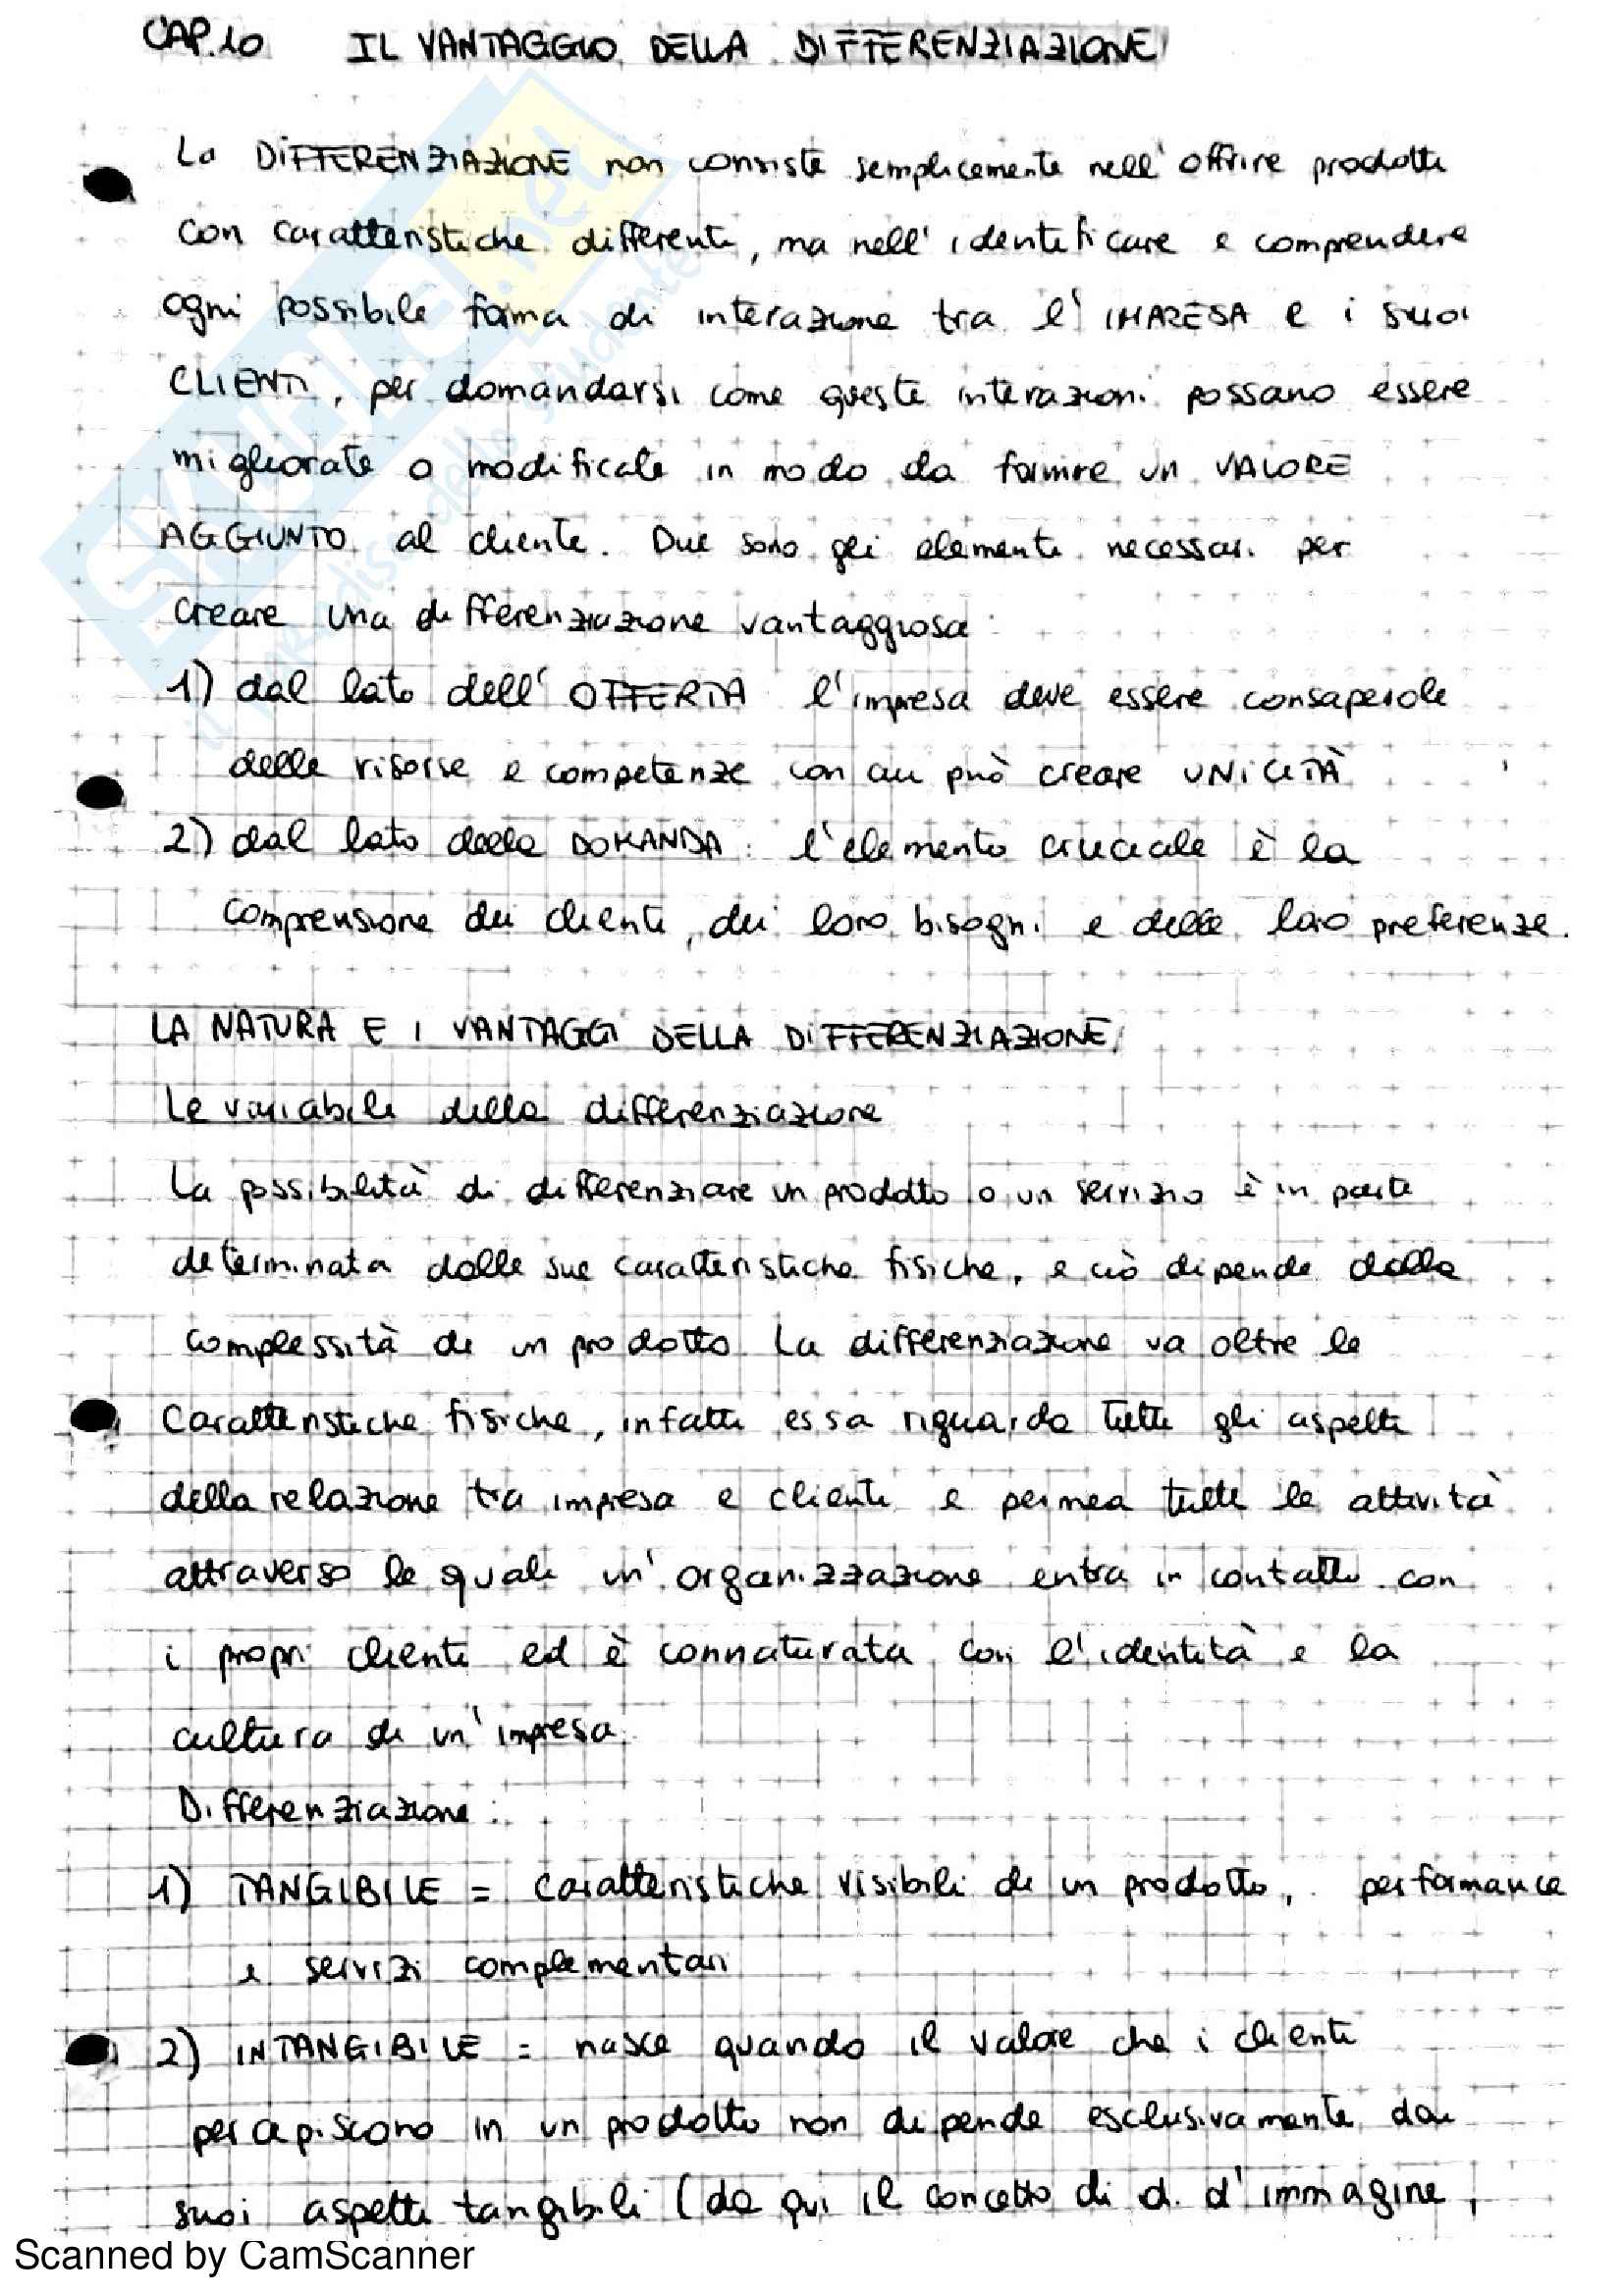 CAP.10 IL VANTAGGIO DELLA DIFFERENZIAZIONE
La DIFFERENZIAZIONE non consiste semplicemente nell'offrire prodotti
con caratteristiche differenti, ma nell'identificare e comprendere
ogni possibile forma di interazione tra l'IMPRESA e i suoi
CLIENTI, per domandarsi come queste interazioni possano essere
migliorate o modificate in modo da fornire un VALORE
AGGIUNTO al cliente. Due sono gli elementi necessari per
creare una differenziazione vantaggiosa:
1) dal lato dell'OFFERTA l'impresa deve essere consapevole
delle risorse e competenze con cui può creare UNICITÀ
2) dal lato della DOMANDA: l'elemento cruciale è la
comprensione dei clienti, dei loro bisogni e delle loro preferenze.
LA NATURA E I VANTAGGI DELLA DIFFERENZIAZIONE
Le variabili della differenziazione
La possibilità di differenziare un prodotto o un servizio è in parte
determinata dalle sue caratteristiche fisiche, e ciò dipende dalla
complessità di un prodotto. La differenziazione va oltre le
caratteristiche fisiche, infatti essa riguarda tutti gli aspetti
della relazione tra impresa e clienti e permea tutte le attività
attraverso le quali un'organizzazione entra in contatto con
i propri clienti ed è connaturata con l'identità e la
cultura di un'impresa.
Differenziazione:
1) TANGIBILE = caratteristiche visibili di un prodotto, performance
e servizi complementari
2) INTANGIBILE = nasce quando il valore che i clienti
percepiscono in un prodotto non dipende esclusivamente dai
suoi aspetti tangibili (da qui il concetto di d. d'immagine,
SKUOLA.net
il paradiso dello studente
Scanned by CamScanner